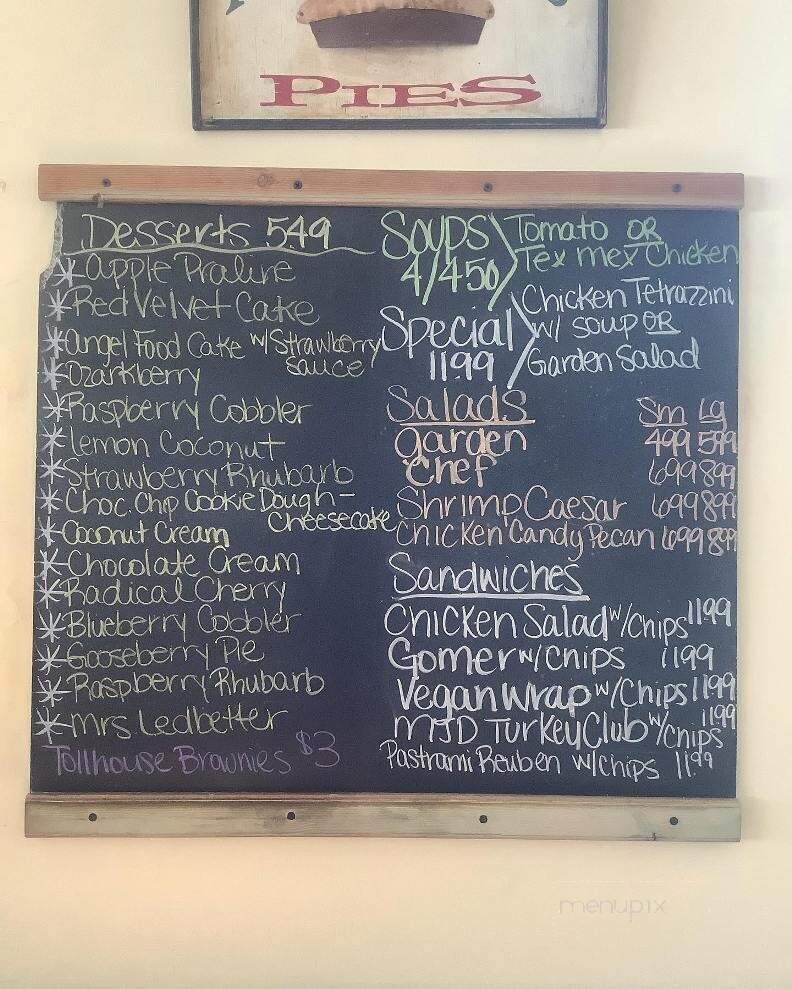 PIES
Desserts 549
* Apple Praline
* Red Velvet Cake
* Angel Food Cake w/ Strawberry
sauce
* Ozarkberry
* Raspberry Cobbler
* Lemon Coconut
* Strawberry Rhubarb
* Choc. Chp Cookie Dough -
Cheesecake
* Coconut Cream
* Chocolate Cream
* Radical Cherry
* Blueberry Cobbler
* Gooseberry Pie
* Raspberry Rhubarb
* Mrs Ledbetter
Tollhouse Brownies $3
Soups
4/450
Tomato OR
Tex mex Chicken
Special
1199
Chicken Tetrazzini
w/ soup OR
Garden Salad
Salads Sm Lg
Garden 499 599
Chef 699 899
Shrimp Caesar 699 899
Chicken Candy Pecan 699 899
Sandwiches
Chicken Salad w/chips 1199
Gomer w/chips 1199
Vegan Wrap w/chips 1199
MJD Turkey Club w/chips 1199
Pastrami Reuben w/chips 11.99
menupix